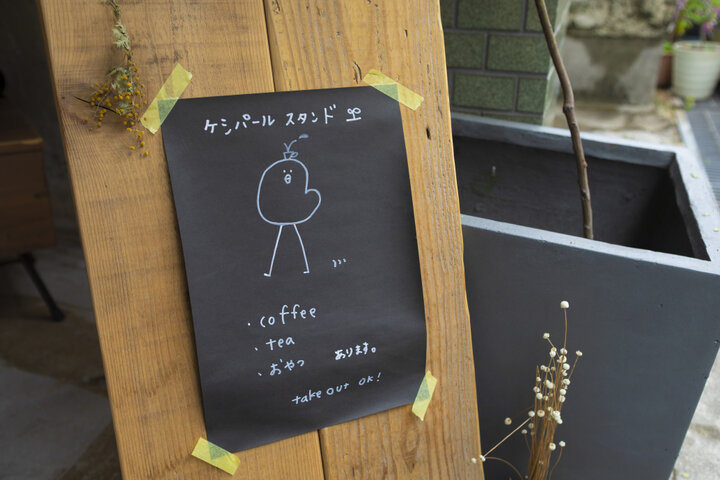 ケシパール スタンド
・coffee
・tea
・おやつ あります。
take out ok!